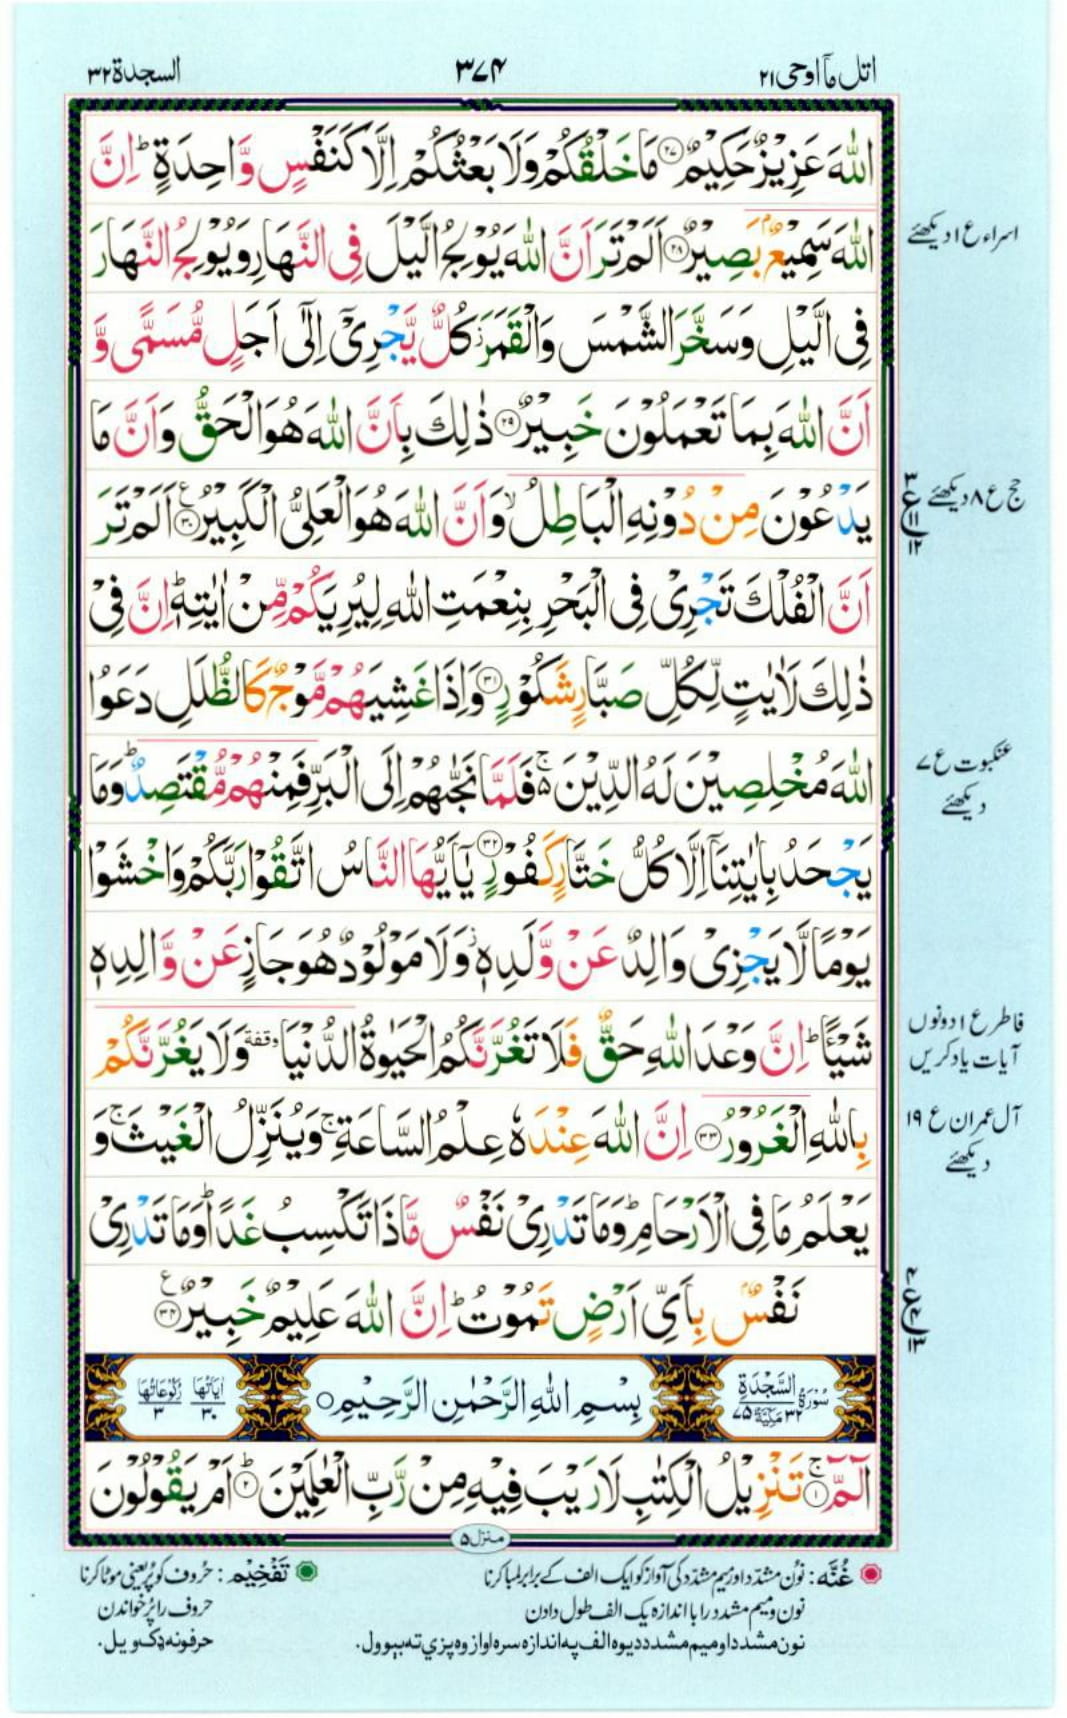 اتل ماۤ اوحی ۲۱
۳۷۴
السجدة ۳۲
اللّٰهَ عَزِیْزٌ حَكِیْمٌ ﴿۲۷﴾ مَا خَلْقُكُمْ وَلَا بَعْثُكُمْ اِلَّا كَنَفْسٍ وَّاحِدَةٍ ؕ اِنَّ
اللّٰهَ سَمِیْعٌۢ بَصِیْرٌ ﴿۲۸﴾ اَلَمْ تَرَ اَنَّ اللّٰهَ یُوْلِجُ الَّیْلَ فِی النَّهَارِ وَیُوْلِجُ النَّهَارَ
فِی الَّیْلِ وَسَخَّرَ الشَّمْسَ وَالْقَمَرَ ؗ كُلٌّ یَّجْرِیْۤ اِلٰۤی اَجَلٍ مُّسَمًّی وَّ
اَنَّ اللّٰهَ بِمَا تَعْمَلُوْنَ خَبِیْرٌ ﴿۲۹﴾ ذٰلِكَ بِاَنَّ اللّٰهَ هُوَ الْحَقُّ وَاَنَّ مَا
یَدْعُوْنَ مِنْ دُوْنِهِ الْبَاطِلُ ۙ وَاَنَّ اللّٰهَ هُوَ الْعَلِیُّ الْكَبِیْرُ ﴿۳۰﴾ اَلَمْ تَرَ
اَنَّ الْفُلْكَ تَجْرِیْ فِی الْبَحْرِ بِنِعْمَتِ اللّٰهِ لِیُرِیَكُمْ مِّنْ اٰیٰتِهٖ ؕ اِنَّ فِیْ
ذٰلِكَ لَاٰیٰتٍ لِّكُلِّ صَبَّارٍ شَكُوْرٍ ﴿۳۱﴾ وَاِذَا غَشِیَهُمْ مَّوْجٌ كَالظُّلَلِ دَعَوُا
اللّٰهَ مُخْلِصِیْنَ لَهُ الدِّیْنَ ۚ۬ فَلَمَّا نَجّٰىهُمْ اِلَی الْبَرِّ فَمِنْهُمْ مُّقْتَصِدٌ ؕ وَمَا
یَجْحَدُ بِاٰیٰتِنَاۤ اِلَّا كُلُّ خَتَّارٍ كَفُوْرٍ ﴿۳۲﴾ یٰۤاَیُّهَا النَّاسُ اتَّقُوْا رَبَّكُمْ وَاخْشَوْا
یَوْمًا لَّا یَجْزِیْ وَالِدٌ عَنْ وَّلَدِهٖ ؗ وَلَا مَوْلُوْدٌ هُوَ جَازٍ عَنْ وَّالِدِهٖ
شَیْـًٔا ؕ اِنَّ وَعْدَ اللّٰهِ حَقٌّ فَلَا تَغُرَّنَّكُمُ الْحَیٰوةُ الدُّنْیَا وقفة وَلَا یَغُرَّنَّكُمْ
بِاللّٰهِ الْغَرُوْرُ ﴿۳۳﴾ اِنَّ اللّٰهَ عِنْدَهٗ عِلْمُ السَّاعَةِ ۚ وَیُنَزِّلُ الْغَیْثَ ۚ وَ
یَعْلَمُ مَا فِی الْاَرْحَامِ ؕ وَمَا تَدْرِیْ نَفْسٌ مَّاذَا تَكْسِبُ غَدًا ؕ وَمَا تَدْرِیْ
نَفْسٌۢ بِاَیِّ اَرْضٍ تَمُوْتُ ؕ اِنَّ اللّٰهَ عَلِیْمٌ خَبِیْرٌ ﴿۳۴﴾
سُوْرَةُ السَّجْدَةِ ۳۲ مَكِّیَّةٌ ۷۵
بِسْمِ اللّٰهِ الرَّحْمٰنِ الرَّحِیْمِ ۝
اٰیَاتُهَا ۳۰ رُكُوْعَاتُهَا ۳
الٓمّٓ ۚ﴿۱﴾ تَنْزِیْلُ الْكِتٰبِ لَا رَیْبَ فِیْهِ مِنْ رَّبِّ الْعٰلَمِیْنَ ؕ﴿۲﴾ اَمْ یَقُوْلُوْنَ
منزل ۵
اسراء ع ۱ دیکھئے
حج ع ۸ دیکھئے
۳
ع
۱۱
۱۲
عنکبوت ع ۷
دیکھئے
فاطر ع ۱ دونوں
آیات یاد کریں
آل عمران ع ۱۹
دیکھئے
۴
ع
۴
۱۳
غُنَّه: نون مشدّد اور میم مشدّد کی آواز کو ایک الف کے برابر لمبا کرنا
نون و میم مشدد را با اندازه یک الف طول دادن
نون مشدد او میم مشدد دیوه الف په اندازه سره اواز وه پزې ته بېوول.
تَفْخِیْم: حُروف کو پُر یعنی موٹا کرنا
حروف را پُر خواندن
حرفونه ډک ویل.